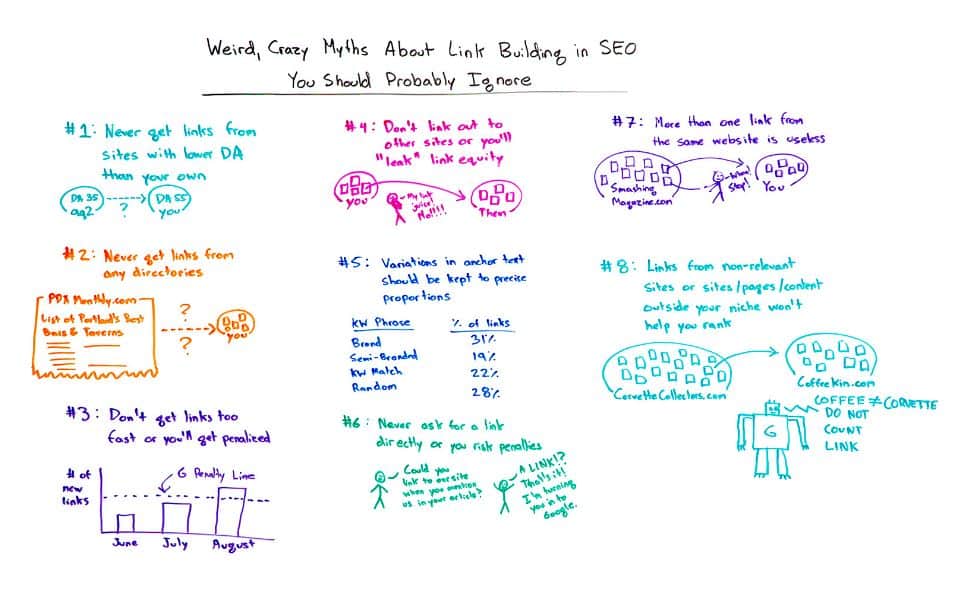 Weird, Crazy Myths About Link Building in SEO
You Should Probably Ignore
#1: Never get links from
sites with lower DA
than your own
DA 35
aq2
?
DA 55
you
#2: Never get links from
any directories
PDX Monthly.com
List of Portland's Best
Bars & Taverns
?
?
you
#3: Don't get links too
fast or you'll get penalized
# of
new
links
G Penalty Line
June July August
#4: Don't link out to
other sites or you'll
"leak" link equity
you
My link
juice!
No!!!!
Them
#5: Variations in anchor text
should be kept to precise
proportions
KW Phrase % of links
Brand 31%
Semi-Branded 19%
KW Match 22%
Random 28%
#6: Never ask for a link
directly or you risk penalties
Could you
link to our site
when you mention
us in your article?
A LINK!?
That's it!
I'm turning
you in to
Google.
#7: More than one link from
the same website is useless
Smashing
Magazine.com
Whoa!
Stop!
You
#8: Links from non-relevant
sites or sites/pages/content
outside your niche won't
help you rank
CorvetteCollectors.com
CoffeeKin.com
G
COFFEE ≠ CORVETTE
DO NOT
COUNT
LINK